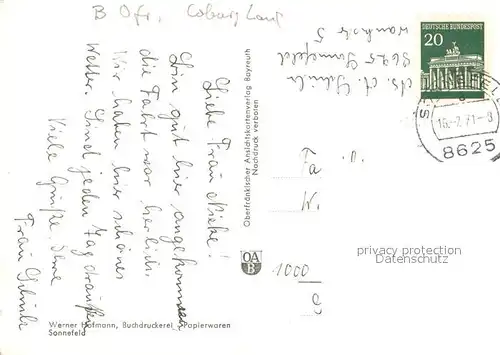 B Ofr. Coburg Land
DEUTSCHE BUNDESPOST
20
16.-2.71-8
8625
Abs. A. Schulz
8625 Sonnefeld
Liebe Frau
Bin gut hier angekommen
die Fahrt war herrlich.
Wir haben hier schönes
Wetter. Sind jeden Tag draußen
Viele Grüße Ihre
Frau Schulz
Oberfränkischer Ansichtskartenverlag Bayreuth
Nachdruck verboten
OA
B
1000
privacy protection
Datenschutz
Werner Hofmann, Buchdruckerei - Papierwaren
Sonnefeld